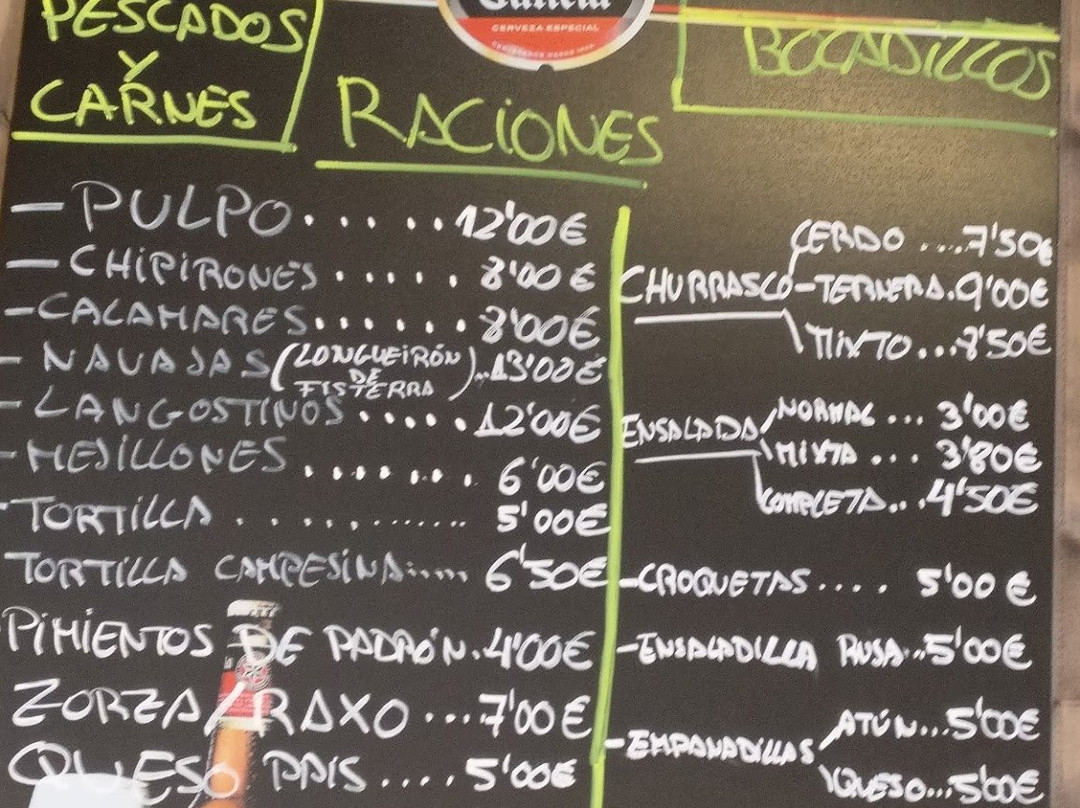 Galicia
CERVEZA ESPECIAL
PESCADOS
Y
CARNES
RACIONES
BOCADILLOS
- PULPO......12'00€
- CHIPIRONES.....8'00€
- CALAMARES.......8'00€
- NAVAJAS (LONGUEIRÓN DE FISTERRA)..13'00€
- LANGOSTINOS.....12'00€
- MEJILLONES.......6'00€
- TORTILLA............5'00€
TORTILLA CAMPESINA......6'50€
PIMIENTOS DE PADRÓN.4'00€
ZORZA/RAXO....7'00€
QUESO PAIS....5'00€
CHURRASCO
CERDO....7'50€
- TERNERA.9'00€
MIXTO...8'50€
ENSALADA
NORMAL...3'00€
MIXTA...3'80€
COMPLETA...4'50€
- CROQUETAS....5'00€
- ENSALADILLA RUSA...5'00€
- EMPANADILLAS
ATÚN...5'00€
QUESO...5'00€